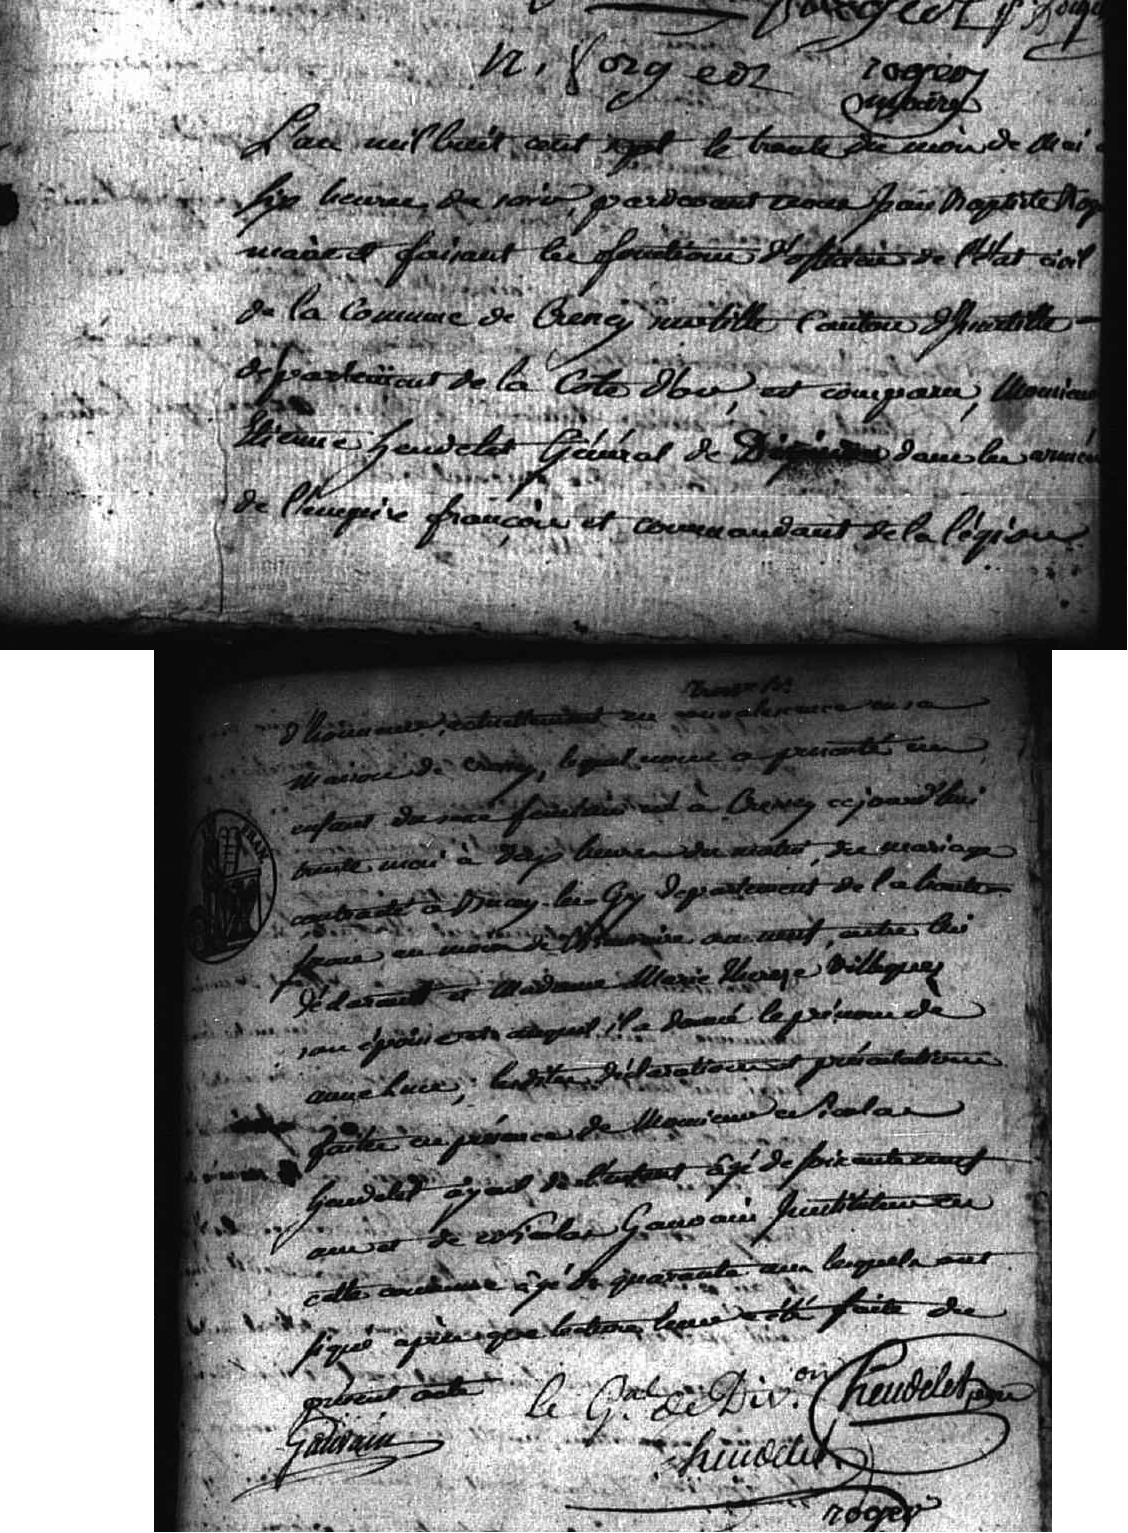 N. Forgeot roger
maire
L'an mil huit cent sept le trente du mois de Mai a
six heures du soir, pardevant nous Jean Baptiste Rog
maire et faisant les fonctions d'officier de l'Etat civil
de la Commune de Cheney sur tille Canton d'
département de la Cote d'or, est comparu, Monsieur
Etienne heudelet Général de Division dans les armées
de l'empire françois et commandant de la légion
d'honneur, actuellement en convalescence en sa
maison de, lequel nous a présenté un
enfant du sexe féminin né à ce jourd'hui
trente mai à dix heures du matin, du mariage
contracté à Bucey-les-Gy département de la haute
saone au mois de an neuf, entre lui
déclarant et Madame Marie Therese Villequez
son épouse et auquel il a donné le prénom de
anne luce, lesdites déclaration et présentation
faites en présence de Monsieur Nicolas
heudelet ayeul de l'enfant âgé de soixante neuf
ans et de Nicolas Gauvain Instituteur en
cette commune âgé de quarante ans lesquels ont
signé après que lecture leur a été faite du
présent acte
le Gal de Divon heudelet
Gauvain
heudelet
roger